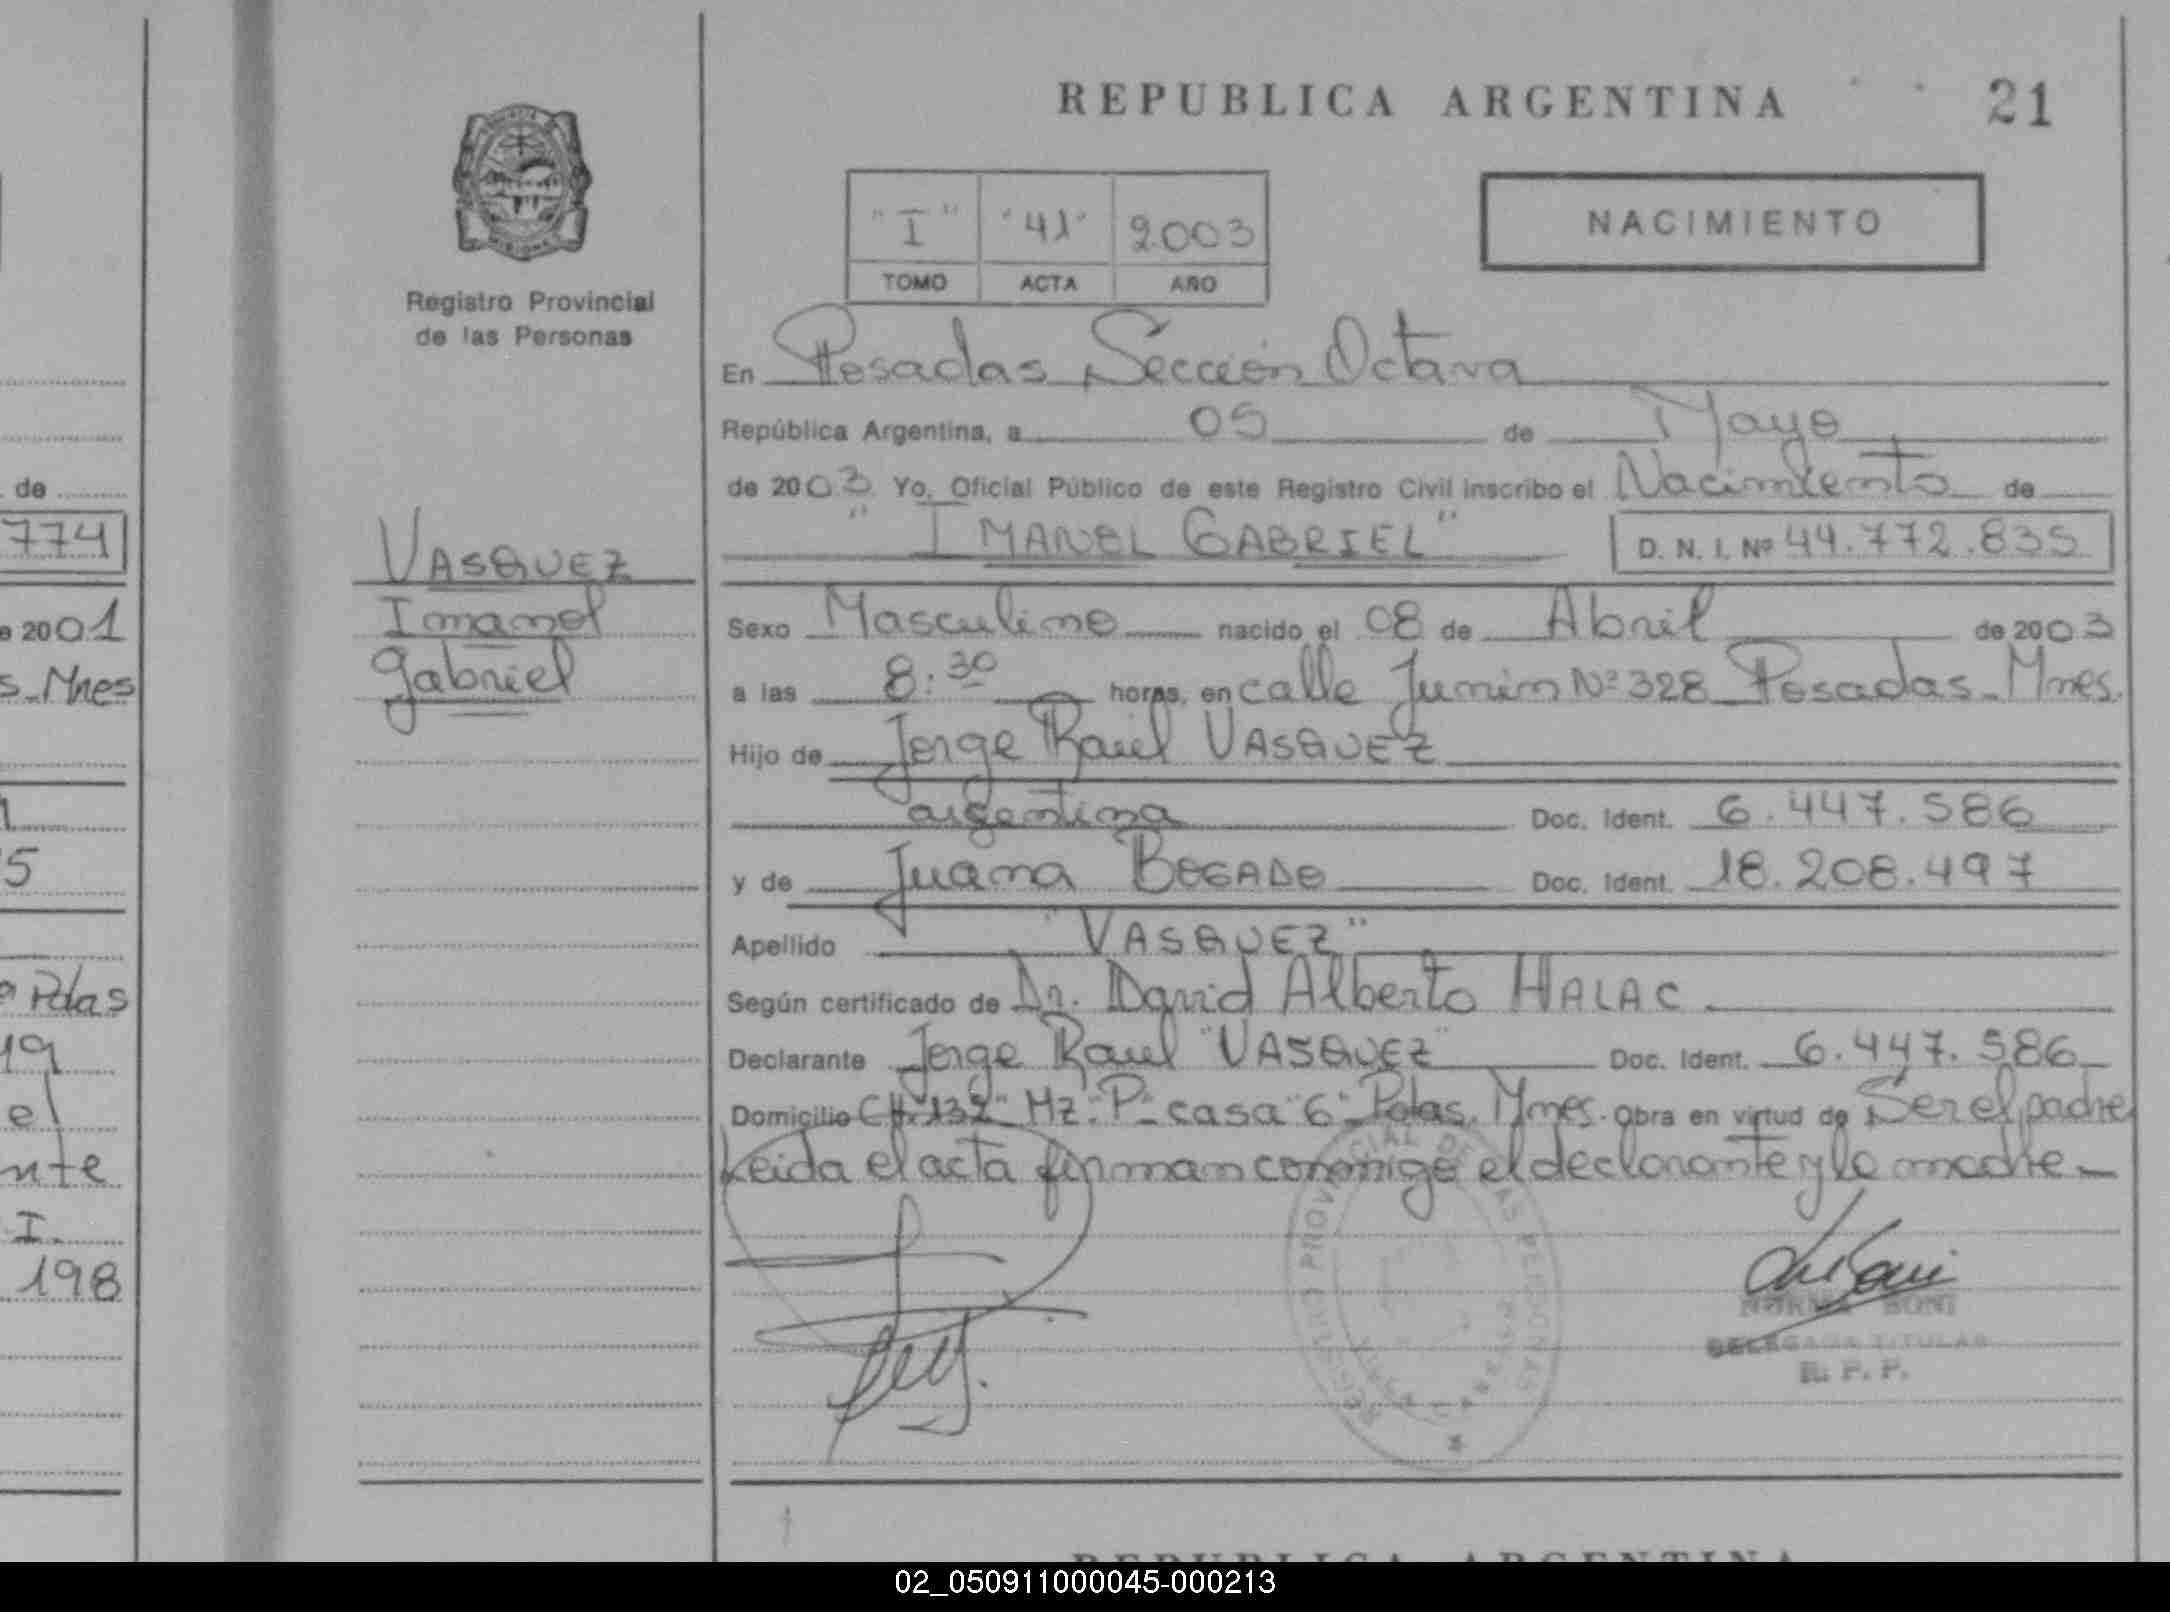 REPUBLICA ARGENTINA
21
"I" "41" 2003
TOMO ACTA AÑO
NACIMIENTO
Registro Provincial
de las Personas
En Posadas Sección Octava
República Argentina, a 05 de Mayo
de 2003 Yo, Oficial Público de este Registro Civil inscribo el Nacimiento de
"IMANOL GABRIEL" D. N. I. Nº 44.772.835
VASQUEZ
Imanol
Gabriel
Sexo Masculino nacido el 08 de Abril de 2003
a las 8:30 horas, en calle Junin Nº 328 Posadas - Mnes.
Hijo de Jorge Raúl VASQUEZ
argentina Doc. Ident. 6.447.586
y de Juana BOGADO Doc. Ident. 18.208.497
Apellido "VASQUEZ"
Según certificado de Dr. David Alberto HALAC
Declarante Jorge Raul "VASQUEZ" Doc. Ident. 6.447.586
Domicilio CH. 132" Mz "P" casa "6" Pdas. Mnes. Obra en virtud de Ser el padre
Leida el acta firman conmigo el declarante y la madre -
REGISTRO PROVINCIAL DE LAS PERSONAS
NORMA BONI
DELEGADA TITULAR
R. P. P.
de
774
2001
s - Mnes
5
Pdas
19
el
nte
I.
198
REPUBLICA ARGENTINA
02_050911000045-000213